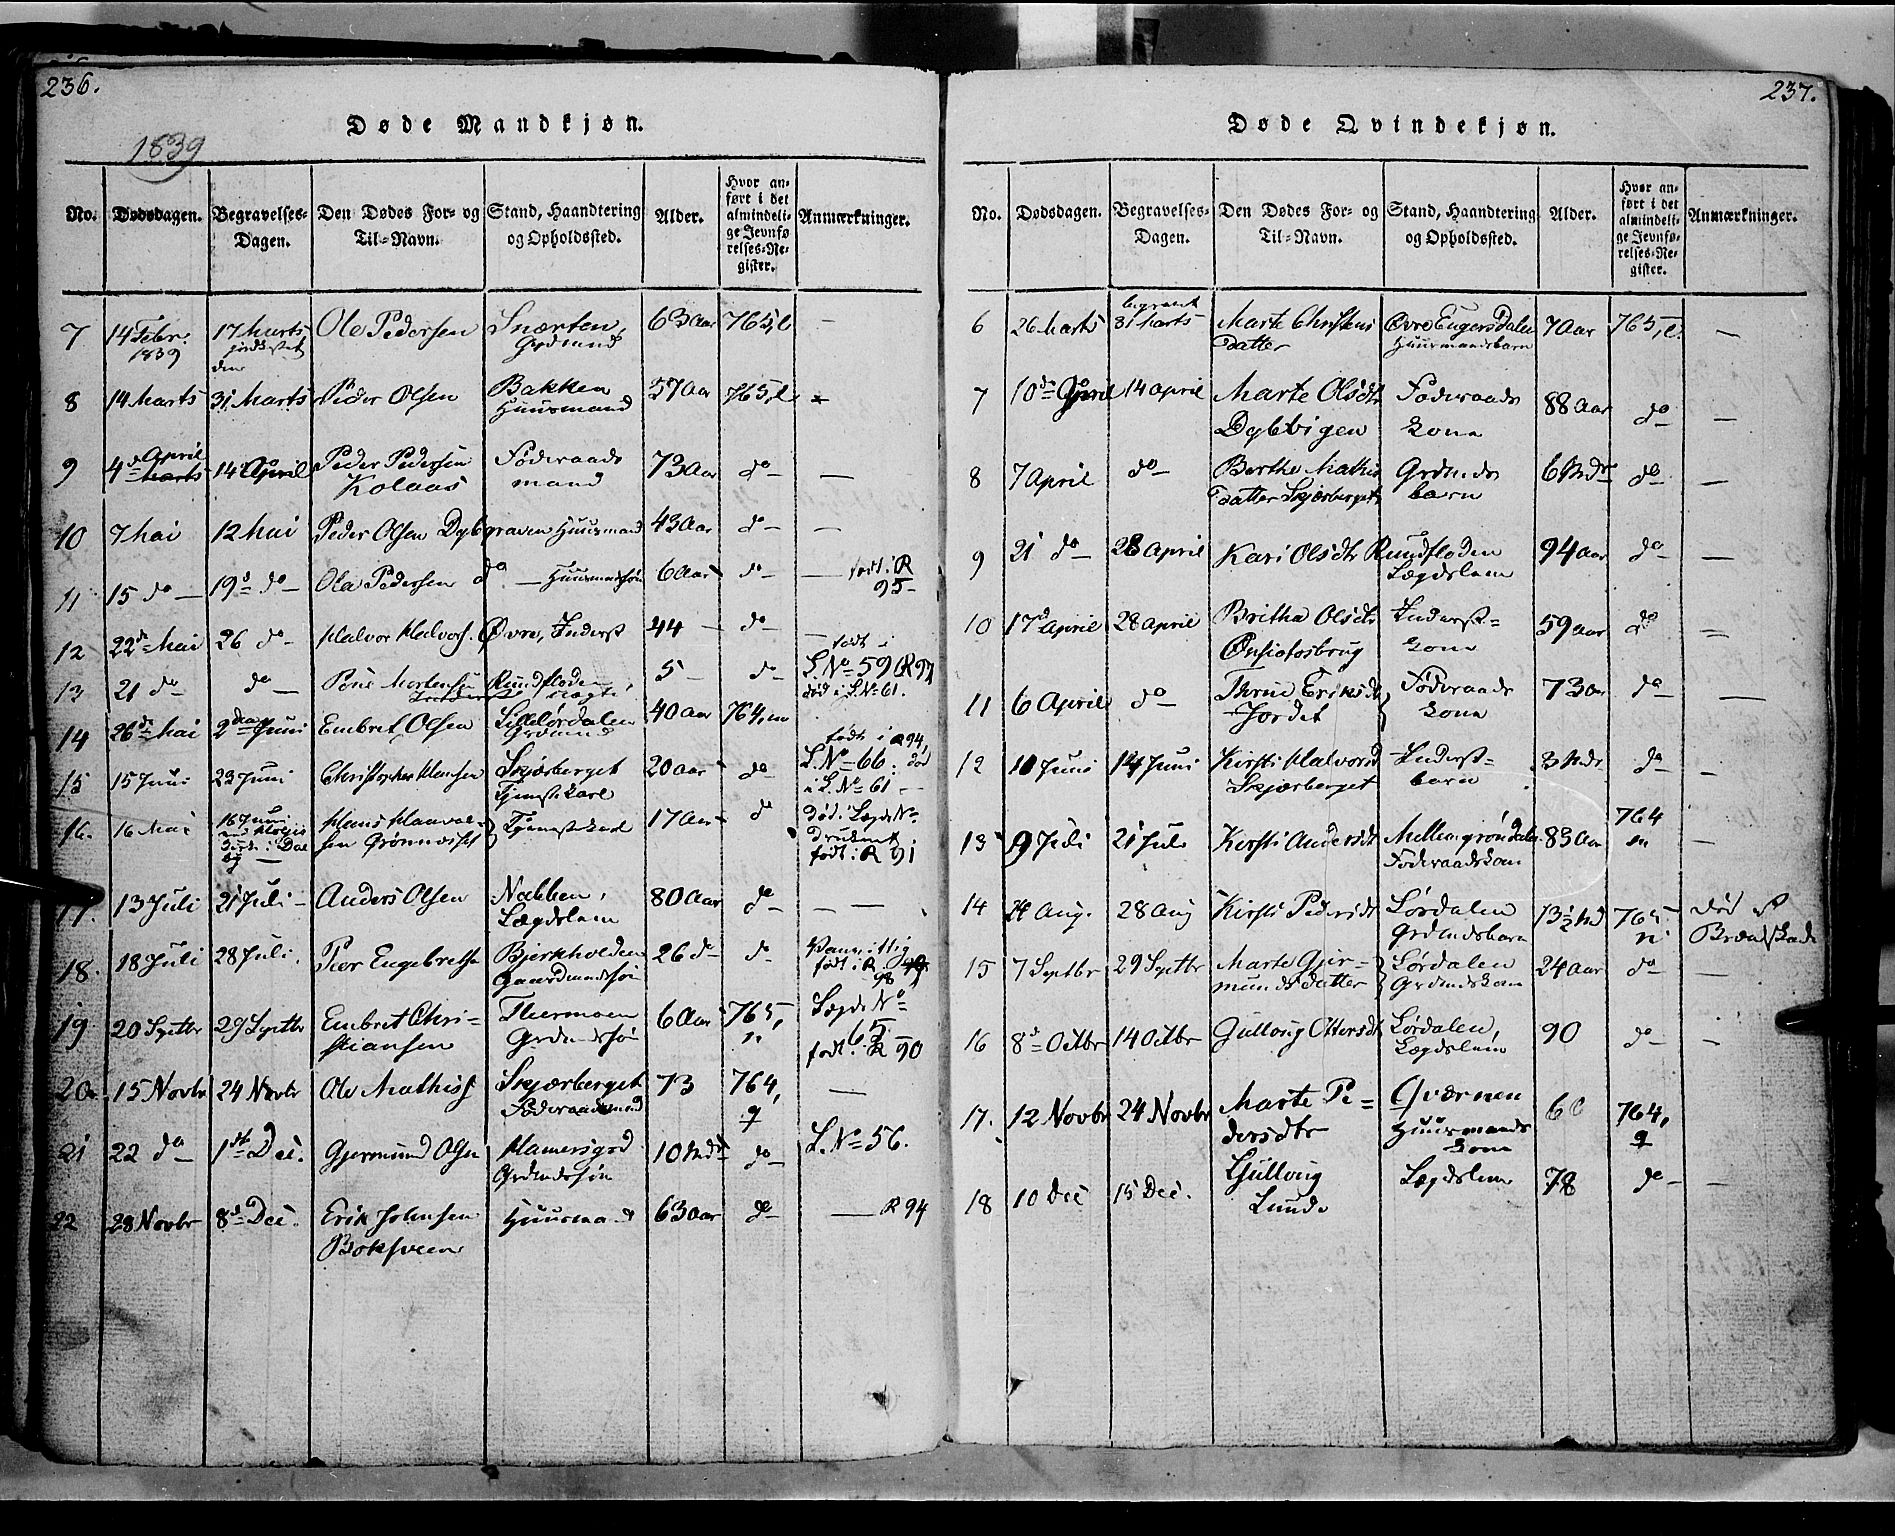 236.
Døde Mandkjøn.
1839
No. Dødsdagen. Begravelses-Dagen. Den Dødes For- og Til-Navn. Stand, Haandtering og Opholdssted. Alder. Hvor anført i det almindelige Jevnførelses-Register. Anmærkninger.
7 14 Febr. 1839 17 Marts jordkastet Ole Pedersen Snerten, Grdmand 63 Aar 765, l —
8 14 Marts 31 Marts Peder Olsen Bakken Huusmand 57 Aar 765, l
9 4de April 14 April Peder Pedersen Kolaas Føderaadsmand 73 Aar do —
10 7 Mai 12 Mai Peder Olsen Dybgraven Huusmand 43 Aar do —
11 15 do 19d do Ola Pedersen do — Huusmandsøn 6 Aar do — født i R 95
12 22de Mai 26 do Halvor Halvors. Øvre, Inderst 44 — do —
13 21 do do Mortensen Rundfloden 5 — do født i L. No 59 R 97 død i L. No 61.
14 26de Mai 2den Juni Embret Olsen Lillelørdalen Grdmand 40 Aar 764, m
15 15 Juni 23 Juni Christopher Hansen Skjærberget Tjenestekarl 20 Aar do født i R 94, L. No 66. død i L. No 61
16. 16 Mai 16 Juni Hans Grønnæsset Tjenestkarl 17 Aar do Død i Lægds No født i R 91
17. 13 Juli 21 Juli Anders Olsen Nabben, Lægdslem 80 Aar do —
18. 18 Juli 28 Juli. Peer Engebrets. Bjerkholden Gaardmandssøn 26 do do født i R. 98
19 20 Septbr 29 Septbr Embret Christiansen Flermoen Grdmdssøn 6 Aar 765, n Lægds No 65 født i R 90
20. 15 Novbr 24 Novbr Ole Mathiss. Skjærberget Føderaadsmand 73 764, q —
21 22 do 1ste Dec. Gjermund Olsen Hamersgrd Grdmdssøn 10 Mdr do L. No 56.
22 28 Novbr 8d Dec. Erik Johnsen Boksveen Huusmand 63 Aar do — R 94
237.
Døde Qvindekjøn.
No. Dødsdagen. Begravelses-Dagen. Den Dødes For- og Til-Navn. Stand, Haandtering og Opholdssted. Alder. Hvor anført i det almindelige Jevnførelses-Register. Anmærkninger.
6 26 Marts begravet 31 Marts Marte Christensdatter Øvre Engersdalen Huusmandsbarn 7 Aar 765, l. —
7 10de April 14 April Marte Olsdtr Dybbvigen Føderaads kone 88 Aar do —
8 7 April do Berthe Mathisdatter Skjærberget Grdmds barn 6 Mdr do —
9 21 do 28 April Kari Olsdtr Rundfloden Lægdslem 94 Aar do —
10 17d April 28 April Britha Olsdtr Inderst= kone 59 Aar do —
11 6 April do Thrine Eriksdtr Jordet Føderaads kone 73 Aar do —
12 10 Juni 14 Juni Kirsti Halvorsd Skjærberget Inderst= barn 3 Mdr do —
13 9 Juli 21 Juli Kirsti Andersdt Mellemgrøndalen Føderaadskone 83 Aar 764 m —
14 24 Aug. 28 Aug Kirsti Pedersdt Lørdalen Grdmdsbarn 13½ Md 765 n. død af Brandskade
15 7 Septbr 29 Septbr Marte Gjermundsdatter Lørdalen Grdmdskone 24 Aar do —
16 8d Octbr 14 Octbr Gullaug Ottersdt Lørdalen, Lægdslem 90 do —
17. 12 Novbr 24 Novbr Marte Pedersdtr Qværnen Huusmands kone 764, q
18 10 Dec 15 Dec. Gullaug Lunde Lægdslem 78 do —